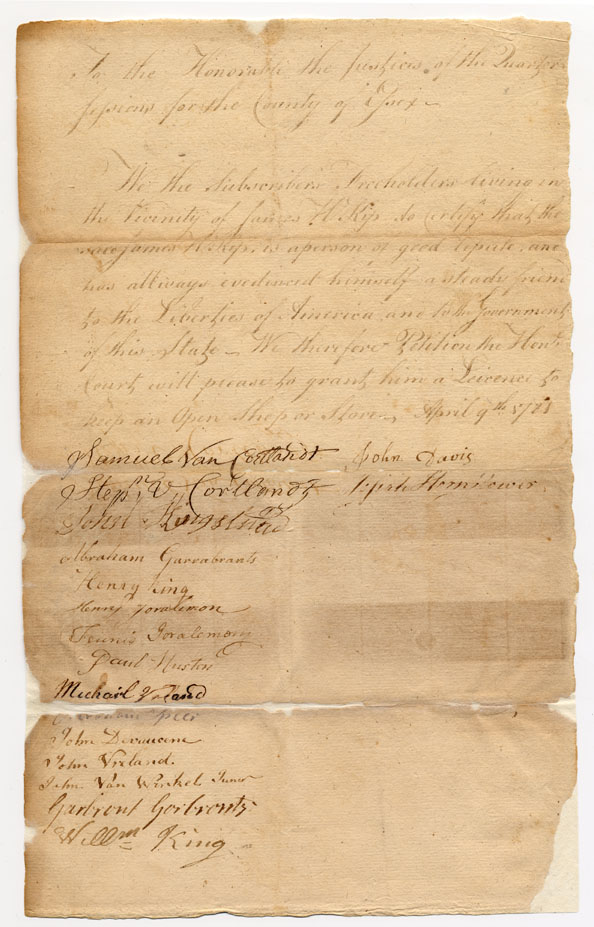 To the Honorable the Justices of the Quarter
Sessions for the County of Essex
We the Subscribers Freeholders living in
the Vicinity of James H. Kip do certify that the
said James H. Kip, is a person of good repute, and
has allways evedinced himself a steady friend
to the Liberties of America and to the Government
of this State - We therefore Petition the Honl.
Court will please to grant him a Leicence to
keep an Open Shop or Store April 9th
Samuel Van Cortlandt John Davis
Stepn. V. Cortlandt Josiah Hornblower
John
Abraham Garrabrants
Henry King
Henry Toralemon
Teunis Toralemon
Paul
Michail Vreland
John
John Vreland.
John Van Winkel Junor
Garbront Gorbronts
Willm King